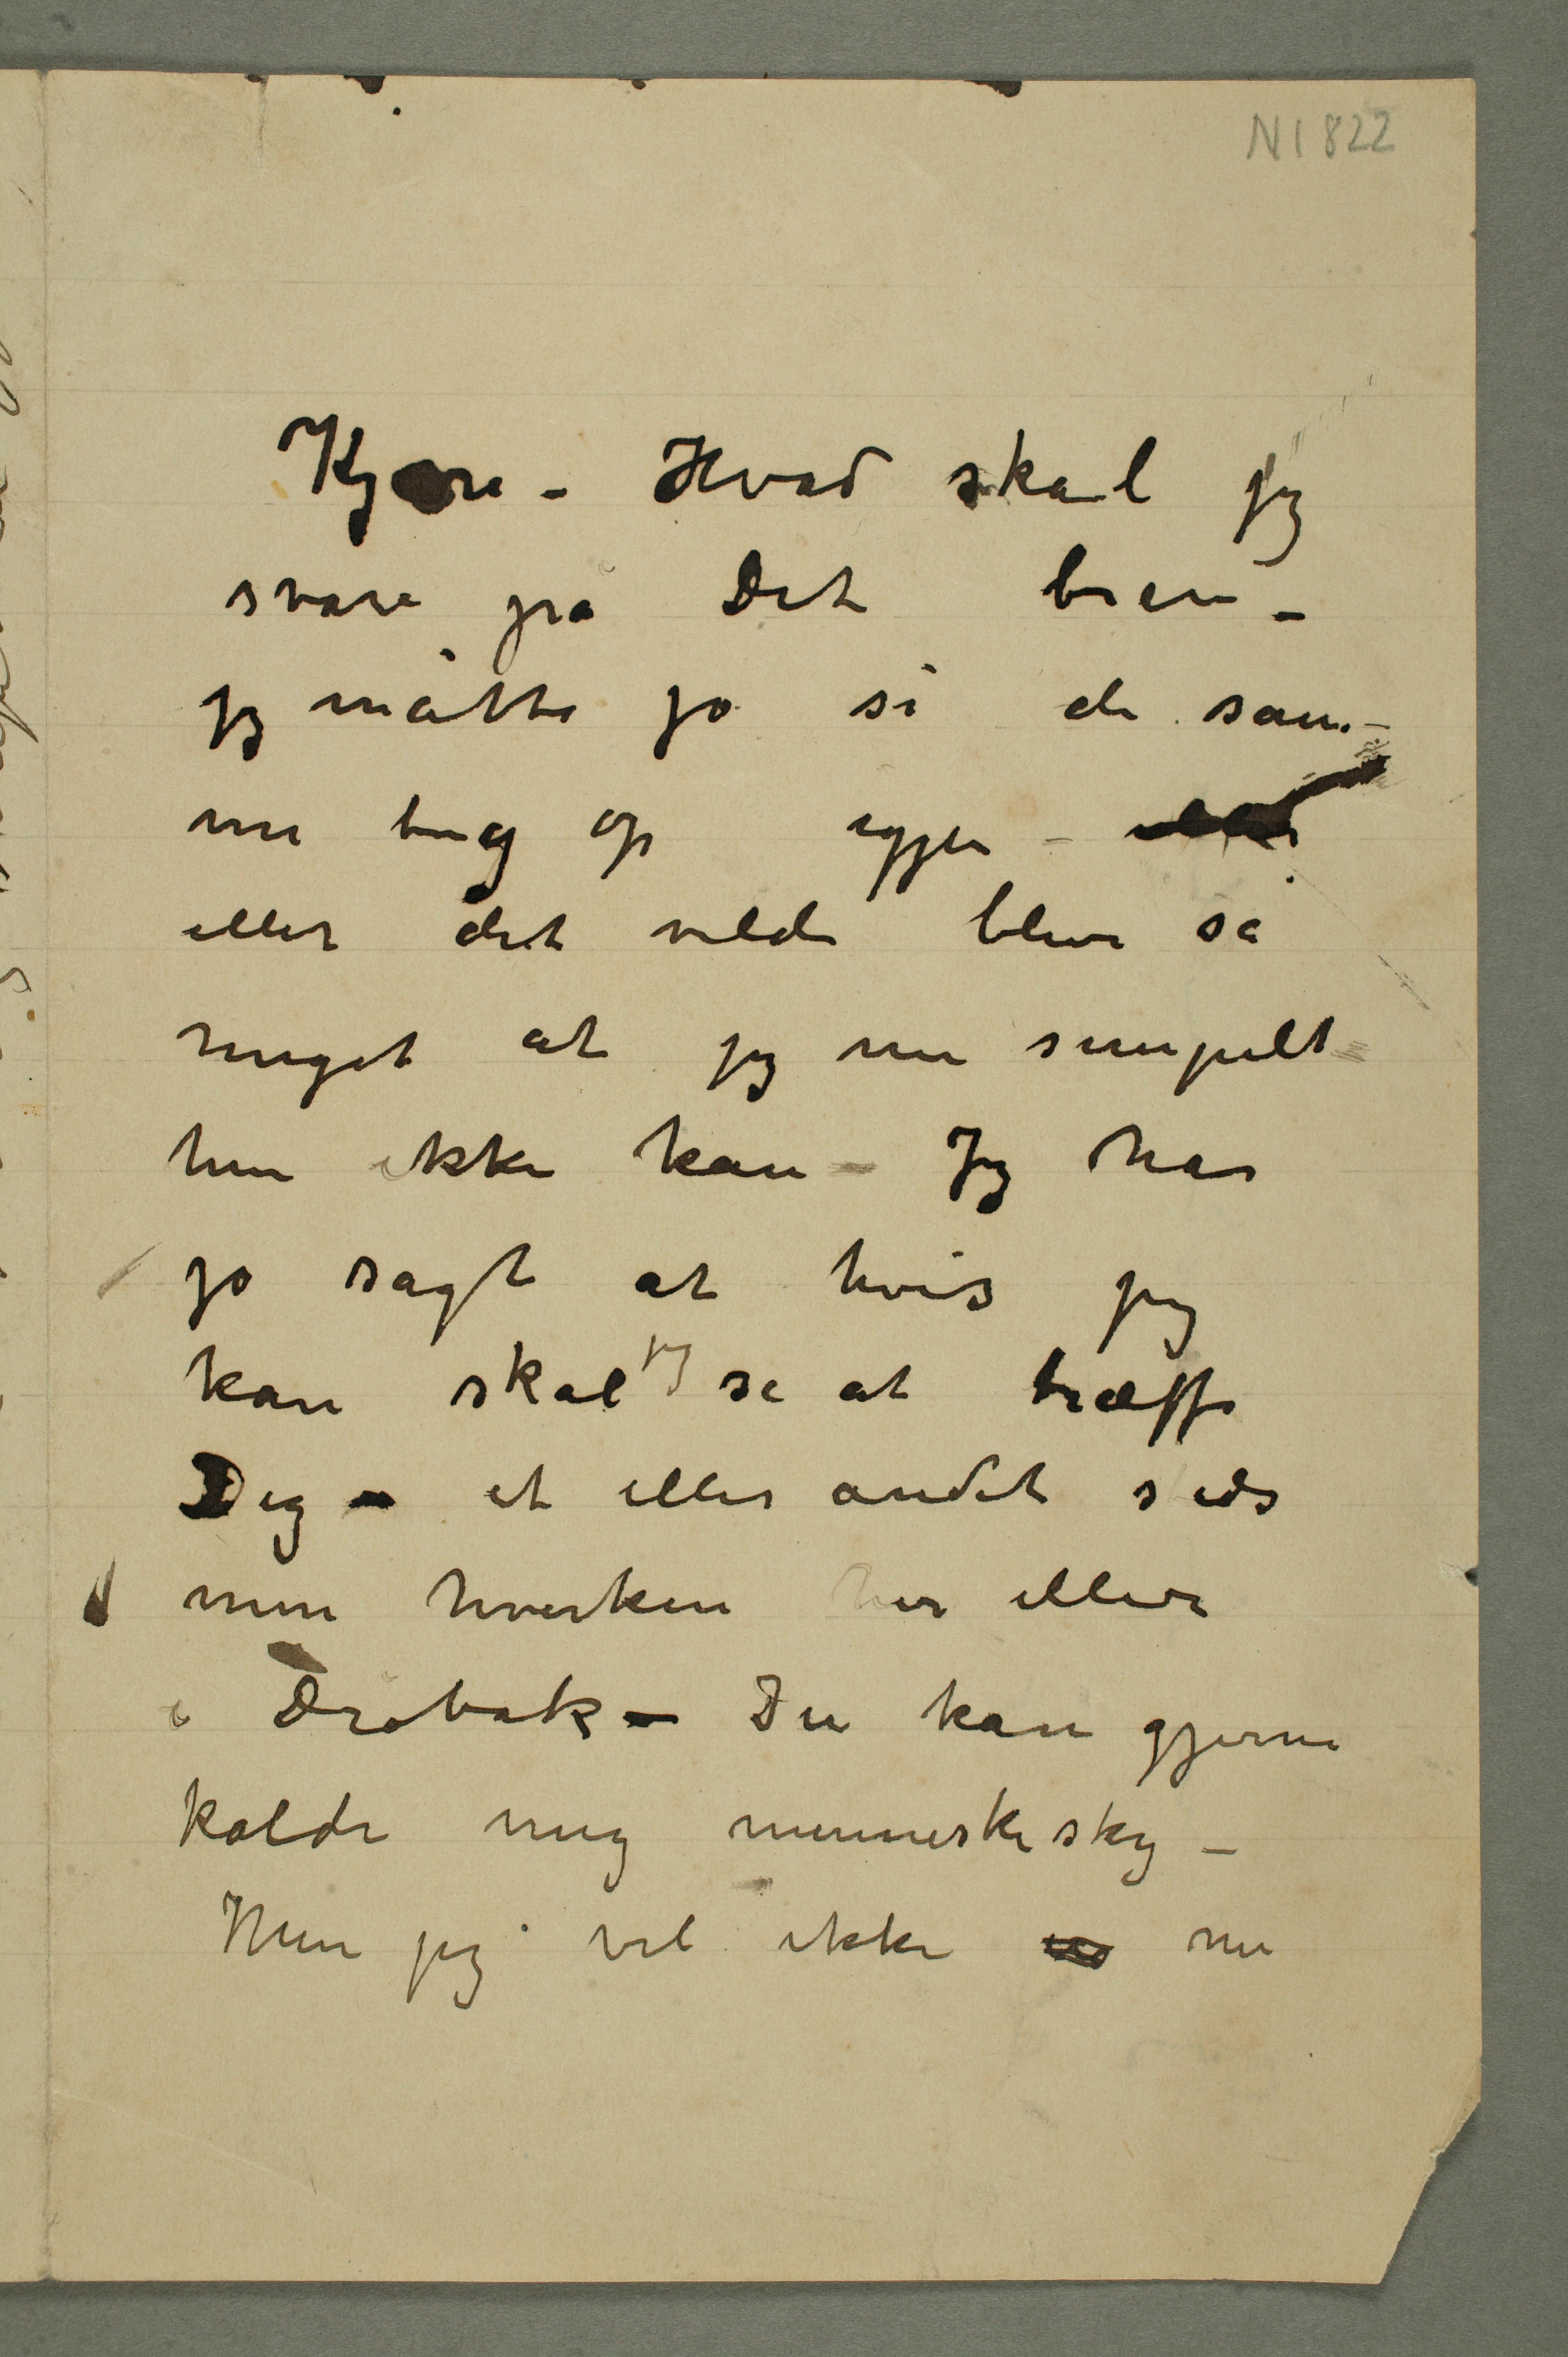 N 1822
Kjære – Hvad skal jeg
svare på Dit brev –
jeg måtte jo si de sam-
me ting op igjen –
eller det vilde blive så
meget at jeg nu simpelt
hen ikke kan – Jeg har
jo sagt at hvis jeg
kan skal jeg se at træffe
Dig – et eller andet sted
men hverken her eller
i Drøbak – Du kan gjerne
kalde mig menneskesky –
Men jeg vil ikke nu